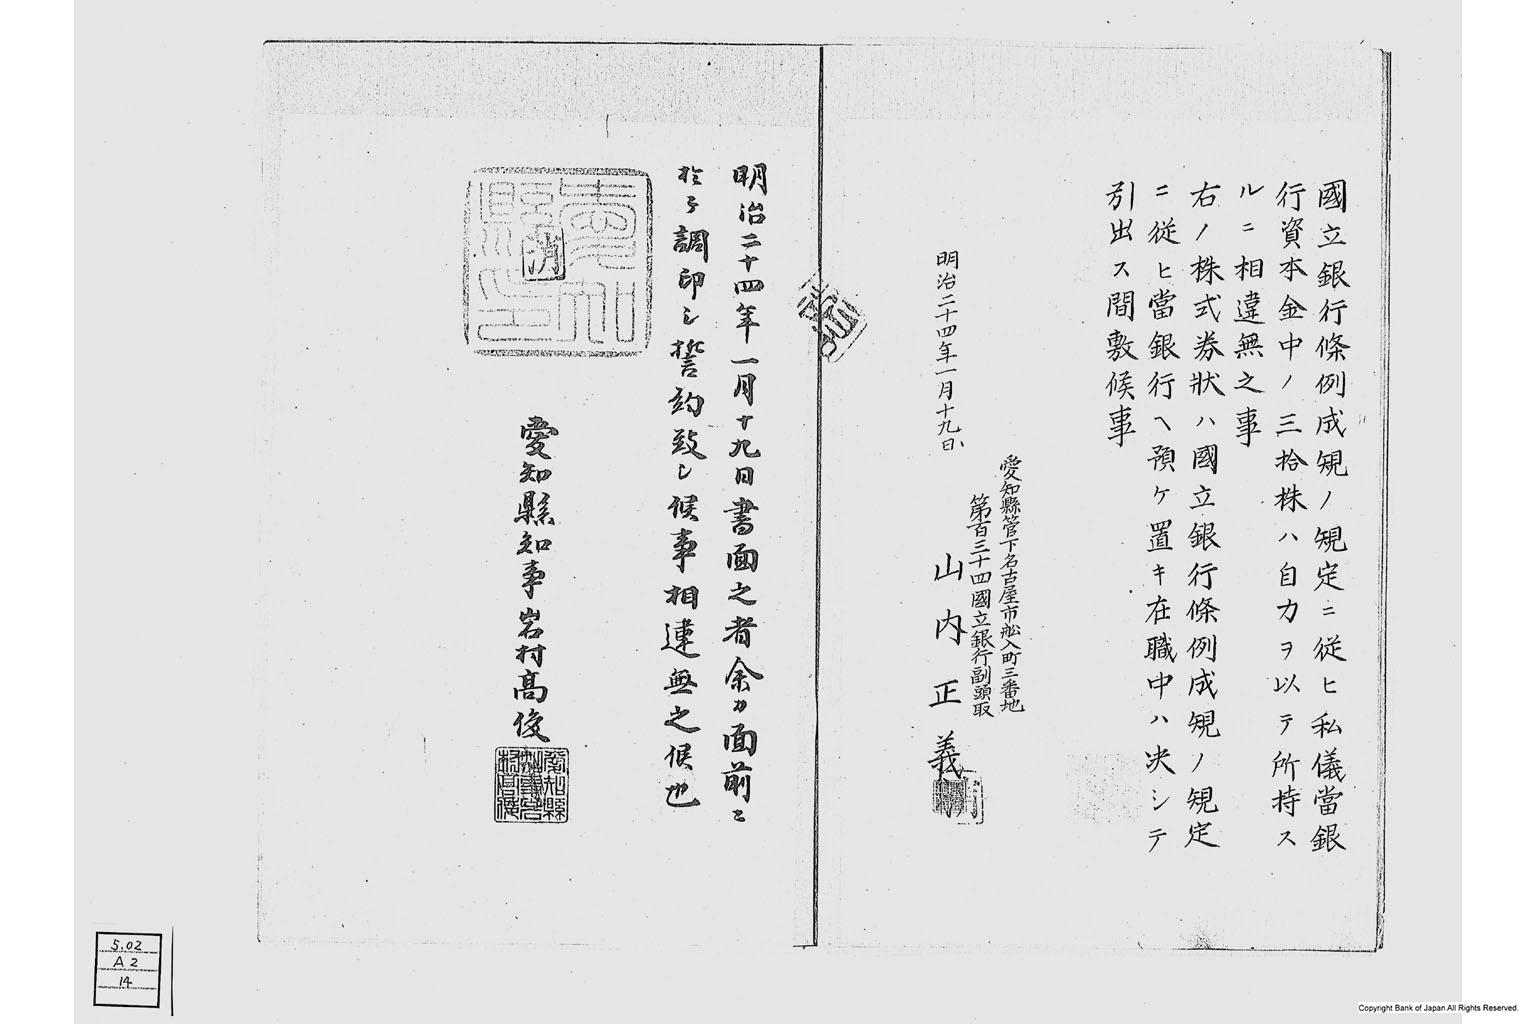 國立銀行條例成規ノ規定ニ従ヒ私儀當銀
行資本金中ノ三拾株ハ自力ヲ以テ所持ス
ルニ相違無之事
右ノ株式券状ハ國立銀行條例成規ノ規定
ニ従ヒ當銀行ヘ預ケ置キ在職中ハ决シテ
引出ス間敷候事
明治二十四年一月十九日
愛知縣管下名古屋市舩入町三番地
第百三十四國立銀行副頭取
山内正義
明治二十四年一月十九日書面之者余カ面前ニ
於テ調印シ誓約致シ候事相違無之候也
愛知縣知事岩村高俊
愛知縣印
消
愛知縣知事岩村高俊
5.02
A2
14
Copyright Bank of Japan All Rights Reserved.